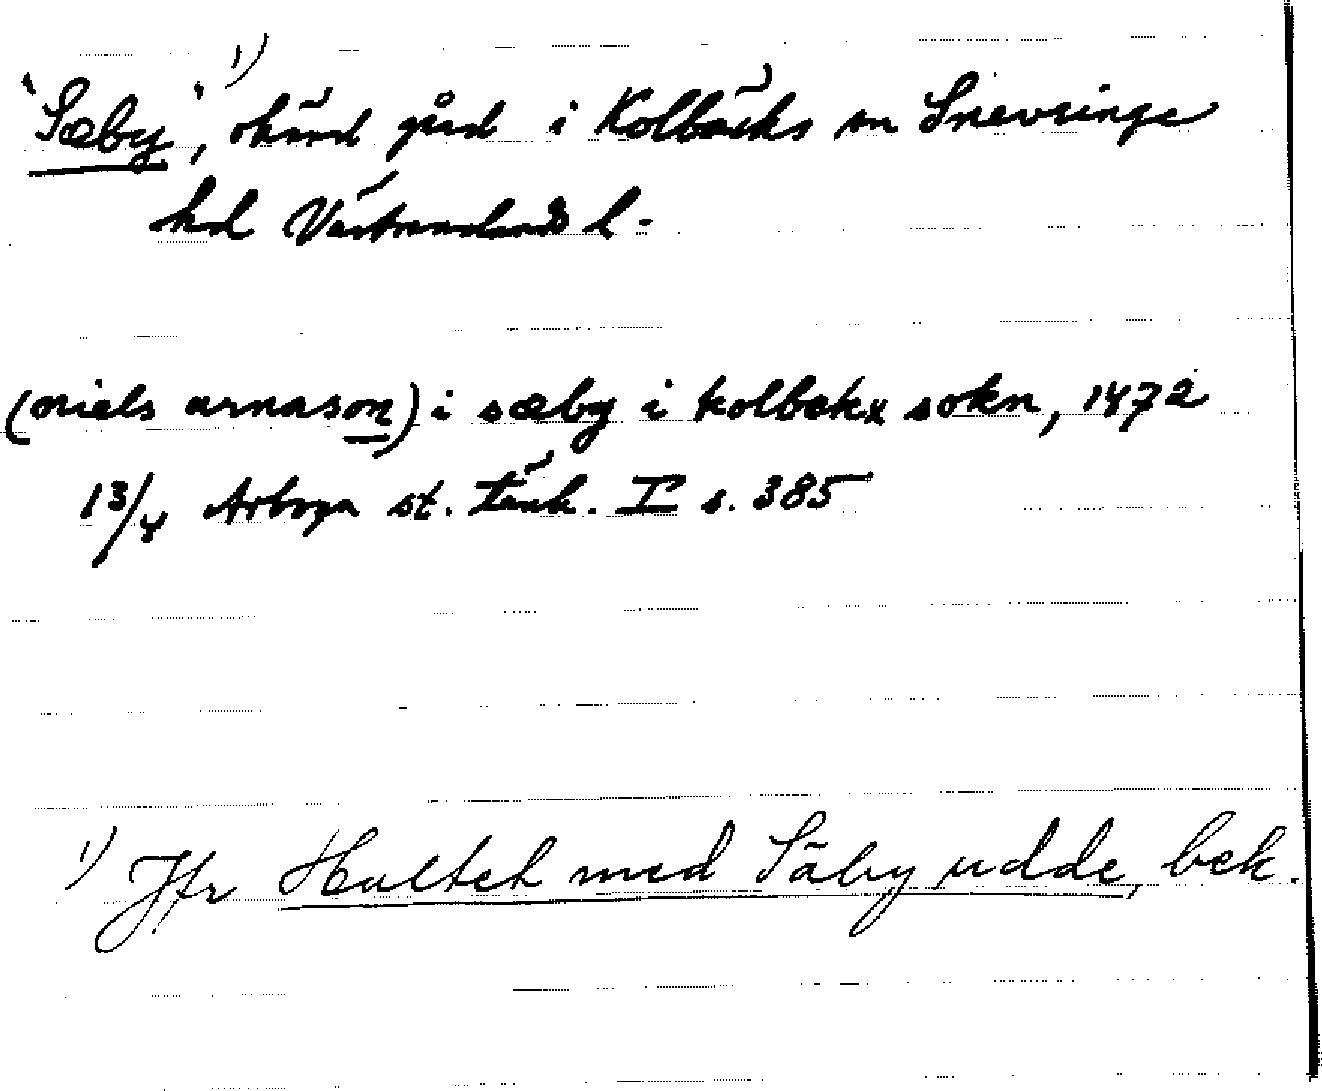 "Sæby",¹⁾ okänd gård i Kolbäcks sn Snevringe
hd Västmanlands l.
(niels arnason) i sæby i kolbækx sokn, 1472
13/4 Arboga st. tänk. I s. 385
¹⁾ Jfr Hultet med Säby udde, bek.